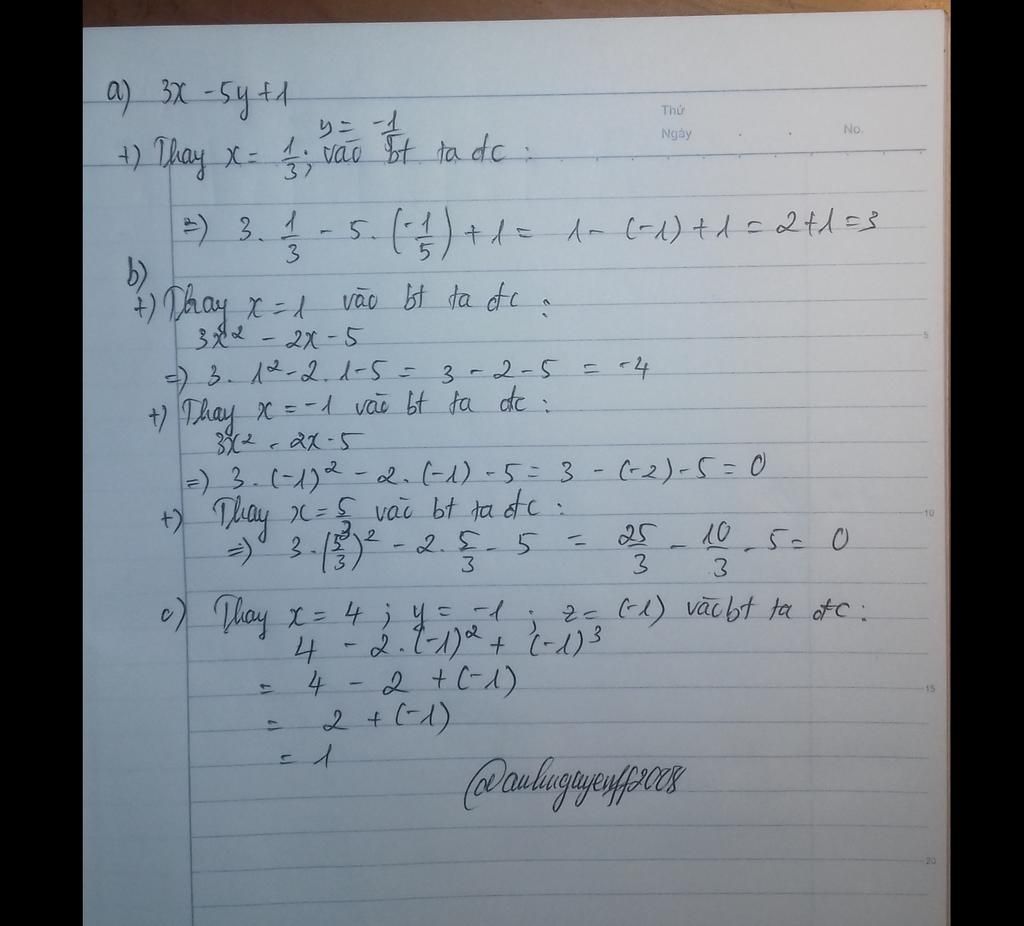 a) 3x - 5y + 1
Thứ
Ngày . . No.
y = -1/5
+) Thay x = 1/3; vào bt ta đc :
=) 3. 1/3 - 5. (-1/5) + 1 = 1 - (-1) + 1 = 2+1=3
b)
+) Thay x = 1 vào bt ta đc :
3x² - 2x - 5
=) 3. 1² - 2. 1 - 5 = 3 - 2 - 5 = -4
+) Thay x = -1 vào bt ta đc :
3x² - 2x - 5
=) 3. (-1)² - 2. (-1) - 5 = 3 - (-2) - 5 = 0
+) Thay x = 5/3 vào bt ta đc :
=) 3. (5/3)² - 2. 5/3 - 5 = 25/3 - 10/3 - 5 = 0
c) Thay x = 4 ; y = -1 ; z = (-1) vào bt ta đc :
4 - 2. (-1)² + (-1)³
= 4 - 2 + (-1)
= 2 + (-1)
= 1
5
10
15
20